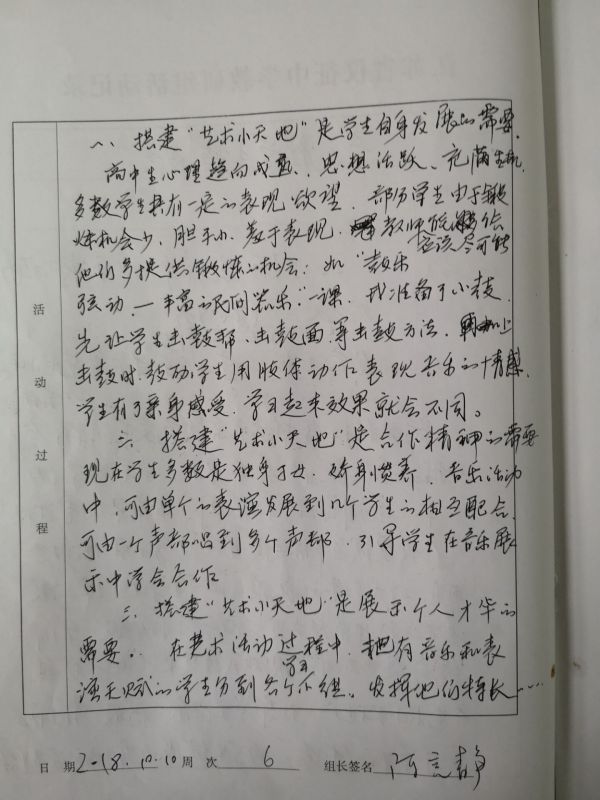 活动过程
一、搭建“艺术小天地”是学生自身发展的需要.
高中生心理趋向成熟、思想活跃、充满生机,
多数学生具有一定的表现欲望.部分学生由于锻
炼机会少.胆子小.羞于表现.教师应该尽可能给
他们多提供锻炼的机会:如“鼓乐
弦动.一丰富的民间器乐”一课.我准备了小鼓.
先让学生击鼓帮.击鼓面.等击鼓方法.
击鼓时.鼓励学生用肢体动作表现音乐的情感.
学生有了亲身感受.学习起来效果就会不同。
二、搭建“艺术小天地”是合作精神的需要
现在学生多数是独身子女.娇身惯养.音乐活动
中.可由单个的表演发展到几个学生的相互配合.
可由一个声部唱到多个声部.引导学生在音乐展
示中学会合作
三.搭建“艺术小天地”是展示个人才华的
需要..在艺术活动过程中.把有音乐和表
演天赋的学生分到各个小组。发挥他们特长……
日期2018.10.10周次6组长签名